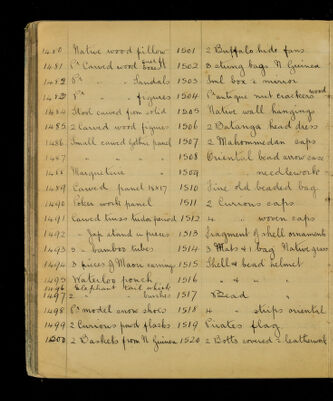 1480 Native wood pillow
1481 Pr Carved wood
1482 Pr " Sandals
1483 Pr " figures
1484 Stool carved from solid
1485 2 Carved wood figures
1486 Small carved Gothic panel
1487 " " "
1488 Marqueterie "
1489 Carved panel 18x17
1490 Poker work panel
1491 Carved truss tudor period
1492 " Jap stand in pieces
1493 3 - bamboo tubes
1494 3 pieces of Maori carving
1495 Waterloo pouch
1496 Elephant tail whisk
1497 2 " " brushes
1498 Pr model snow shoes
1499 2 Curious powd flasks
1500 2 Baskets from N Guinea
1501 2 Buffalo hide fans
1502 3 string bags N Guinea
1503 Sml box & mirror
1504 Pr antique nut crackers wood
1505 Native wall hanging
1506 2 Batanga head dress
1507 2 Mahommedan caps
1508 Oriental bead case
1509 " needlework
1510 Fine old beaded bag
1511 2 Curious caps
1512 4 " woven caps
1513 Fragment of shell ornaments
1514 3 Mats & 1 bag Native grass
1515 Shell & bead helmet
1516 " " "
1517 Bead "
1518 4 " strips oriental
1519 Pirates flag
1520 2 Botts covered in leatherwork